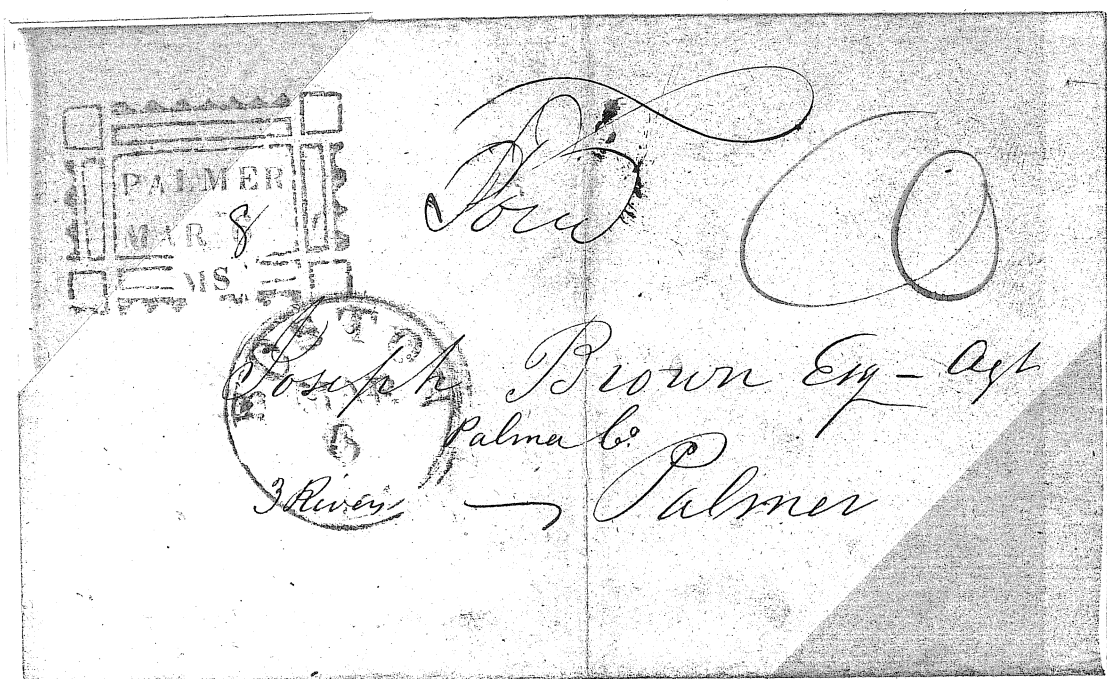 PALMER
MAR 8
MS.
6
BOSTON
MAR
6
Joseph Brown Esq - Agt
Palma Co
3 Rivers — Palmer